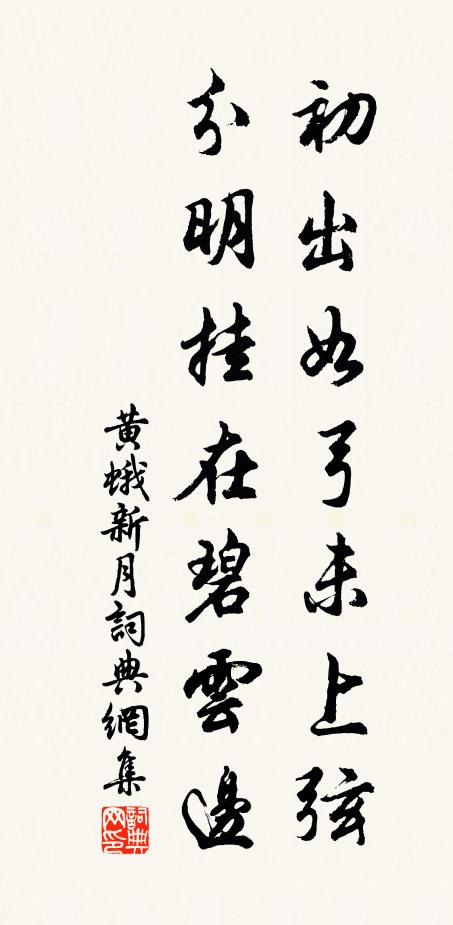 初出如弓未上弦
分明挂在碧雲邊
黄蛾新月詞典網集
詞典
网印